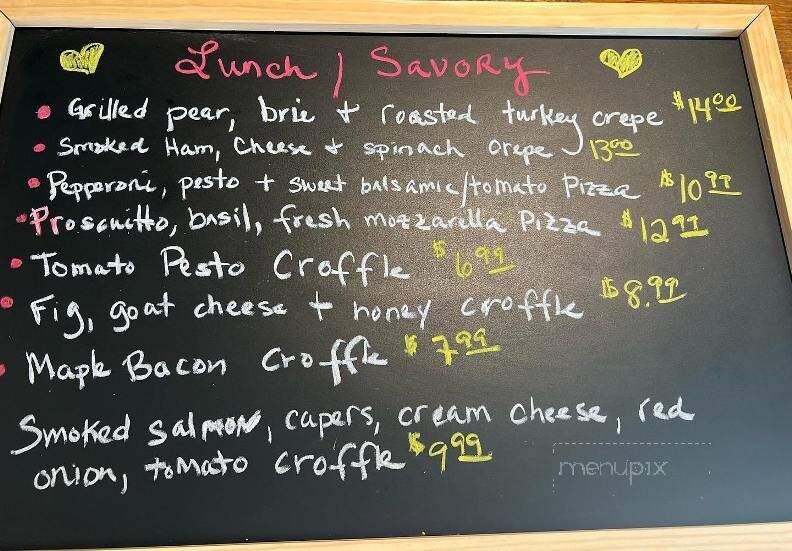 Lunch / Savory
• Grilled pear, brie + roasted turkey crepe $14.00
• Smoked Ham, Cheese + spinach crepe 13.00
• Pepperoni, pesto + sweet balsamic/tomato Pizza $10.99
• Proscuitto, basil, fresh mozzarella Pizza $12.99
• Tomato Pesto Croffle $6.99
• Fig, goat cheese + honey croffle $8.99
• Maple Bacon Croffle $7.99
Smoked salmon, capers, cream cheese, red
onion, tomato croffle $9.99
menupix